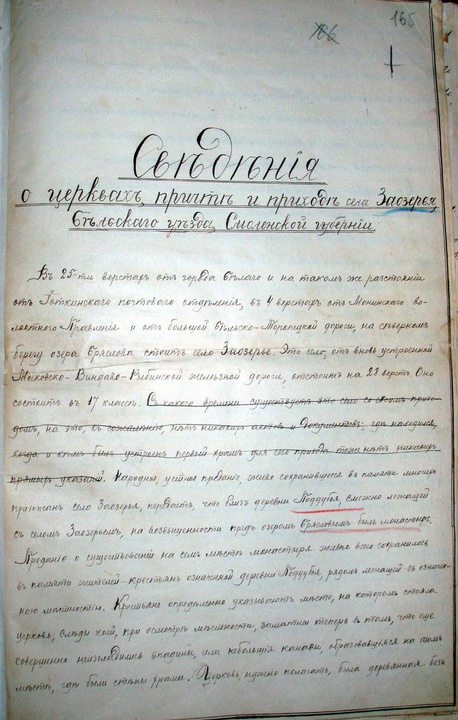 166 165
Свѣдѣнія
о церквахъ, причтѣ и приходѣ села Заозерья,
Бѣльскаго уѣзда, Смоленской губерніи.
Въ 25-ти верстахъ отъ города Бѣлаго и на такомъ же разстояніи
отъ Готкинскаго почтоваго отдѣленія, въ 4 верстахъ отъ Монинскаго во-
лостнаго Правленія и отъ большой Бѣльско-Торопецкой дороги, на сѣверномъ
берегу озера Бряслова стоитъ село Заозерье. Это село, отъ вновь устроенной
Московско-Виндаво-Рыбинской желѣзной дороги, отстоитъ на 28 верстъ. Оно
состоитъ въ 17 классѣ. Съ какого времени существуетъ это село со своимъ прихо-
домъ, на это, къ сожалѣнію, нѣтъ никакихъ актовъ и документовъ; гдѣ находился,
когда и кѣмъ былъ устроенъ первый храмъ для его прихода тоже нѣтъ никакихъ
прямыхъ указаній. Народное, устное преданіе, живо сохранившееся въ памяти многихъ
прихожанъ села Заозерья, передаетъ, что близъ деревни Поддубья, смежно лежащей
съ селомъ Заозерьемъ, на возвышенности предъ озеромъ Брясловымъ былъ монастырь.
Преданіе о существованіи на семъ мѣстѣ монастыря живѣе всего сохранилось
въ памяти жителей-крестьянъ означенной деревни Поддубья, рядомъ лежащей съ означен-
ною мѣстностію. Крестьяне опредѣленно указываютъ мѣсто, на которомъ стояла
церковь, слѣды коей, при осмотрѣ мѣстности, замѣтны теперь въ томъ, что еще
совершенно неизгладились впадины, или небольшія канавы, образовавшіяся на томъ
мѣстѣ, гдѣ были стѣны храма. Церковь, нужно полагать, была деревянная безъ